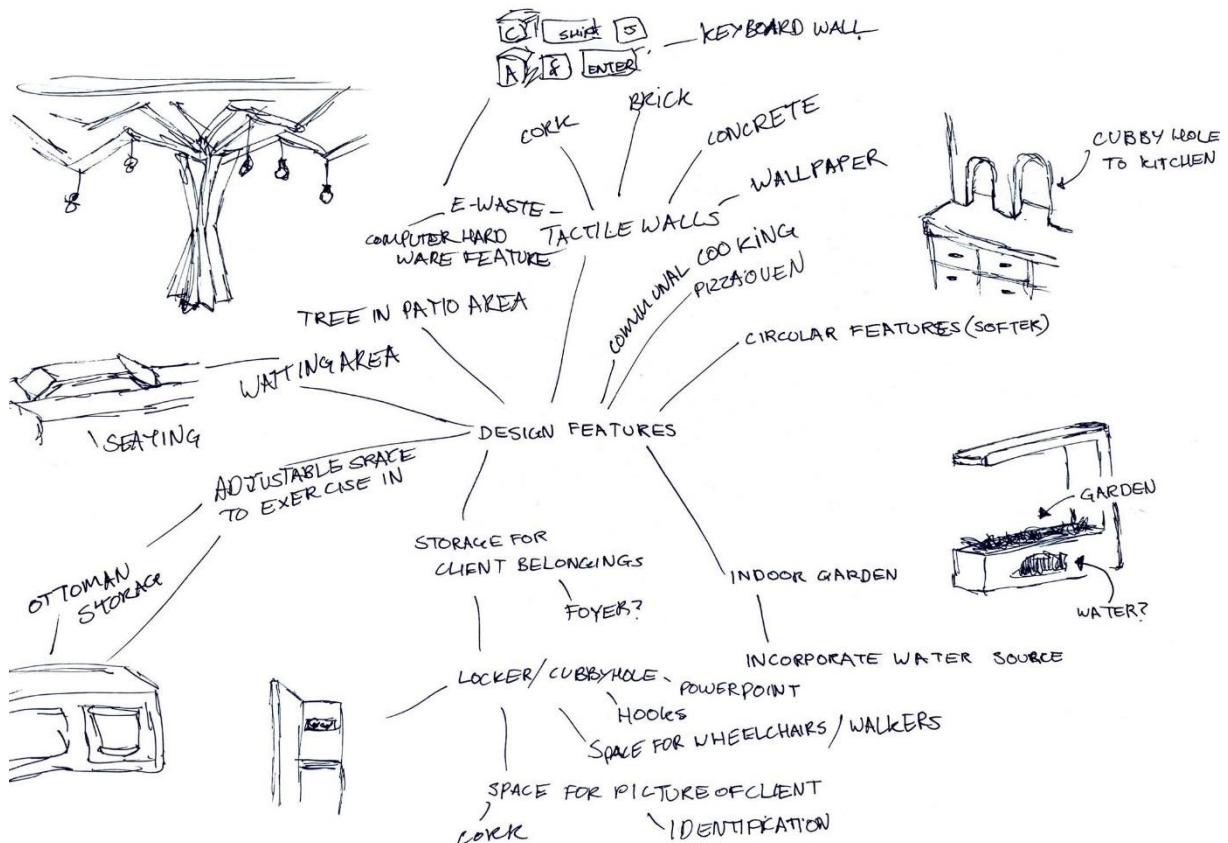 C SHIFT 5
A & ENTER
KEYBOARD WALL
BRICK
CORK
CONCRETE
WALLPAPER
CUBBY HOLE
TO KITCHEN
E-WASTE -
COMPUTER HARD
WARE FEATURE
TACTILE WALLS
COMMUNAL COOKING
PIZZA OVEN
TREE IN PATIO AREA
CIRCULAR FEATURES (SOFTEK)
WAITING AREA
SEATING
DESIGN FEATURES
ADJUSTABLE SPACE
TO EXERCISE IN
GARDEN
STORAGE FOR
CLIENT BELONGINGS
FOYER?
OTTOMAN
STORAGE
INDOOR GARDEN
WATER?
INCORPORATE WATER SOURCE
LOCKER/CUBBYHOLE
POWERPOINT
HOOKS
SPACE FOR WHEELCHAIRS/WALKERS
SPACE FOR PICTURE OF CLIENT
CORK
IDENTIFICATION